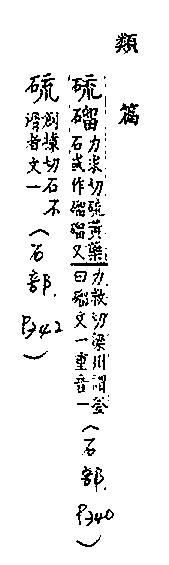 類篇
硫磂力求切硫黃藥石或作磂磂又力救切梁州謂釜曰磂文一重音一（石部，P340）
硫創據切石不滑者文一（石部，P342）